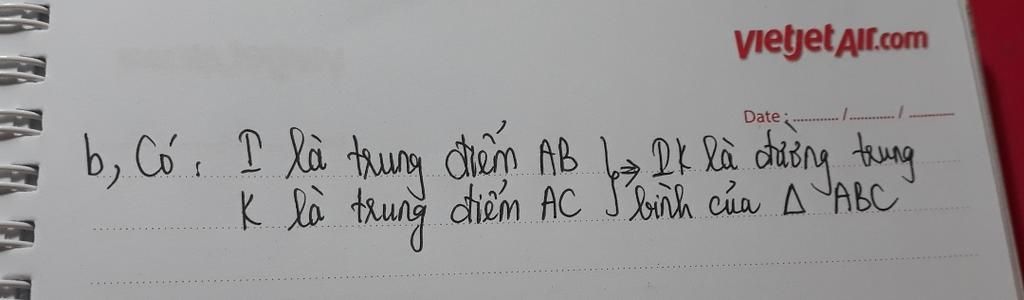 vietjetAir.com
Date : ........... / ........... / ...........
b, Có, I là trung điểm AB } => IK là đường trung
K là trung điểm AC } bình của Δ ABC